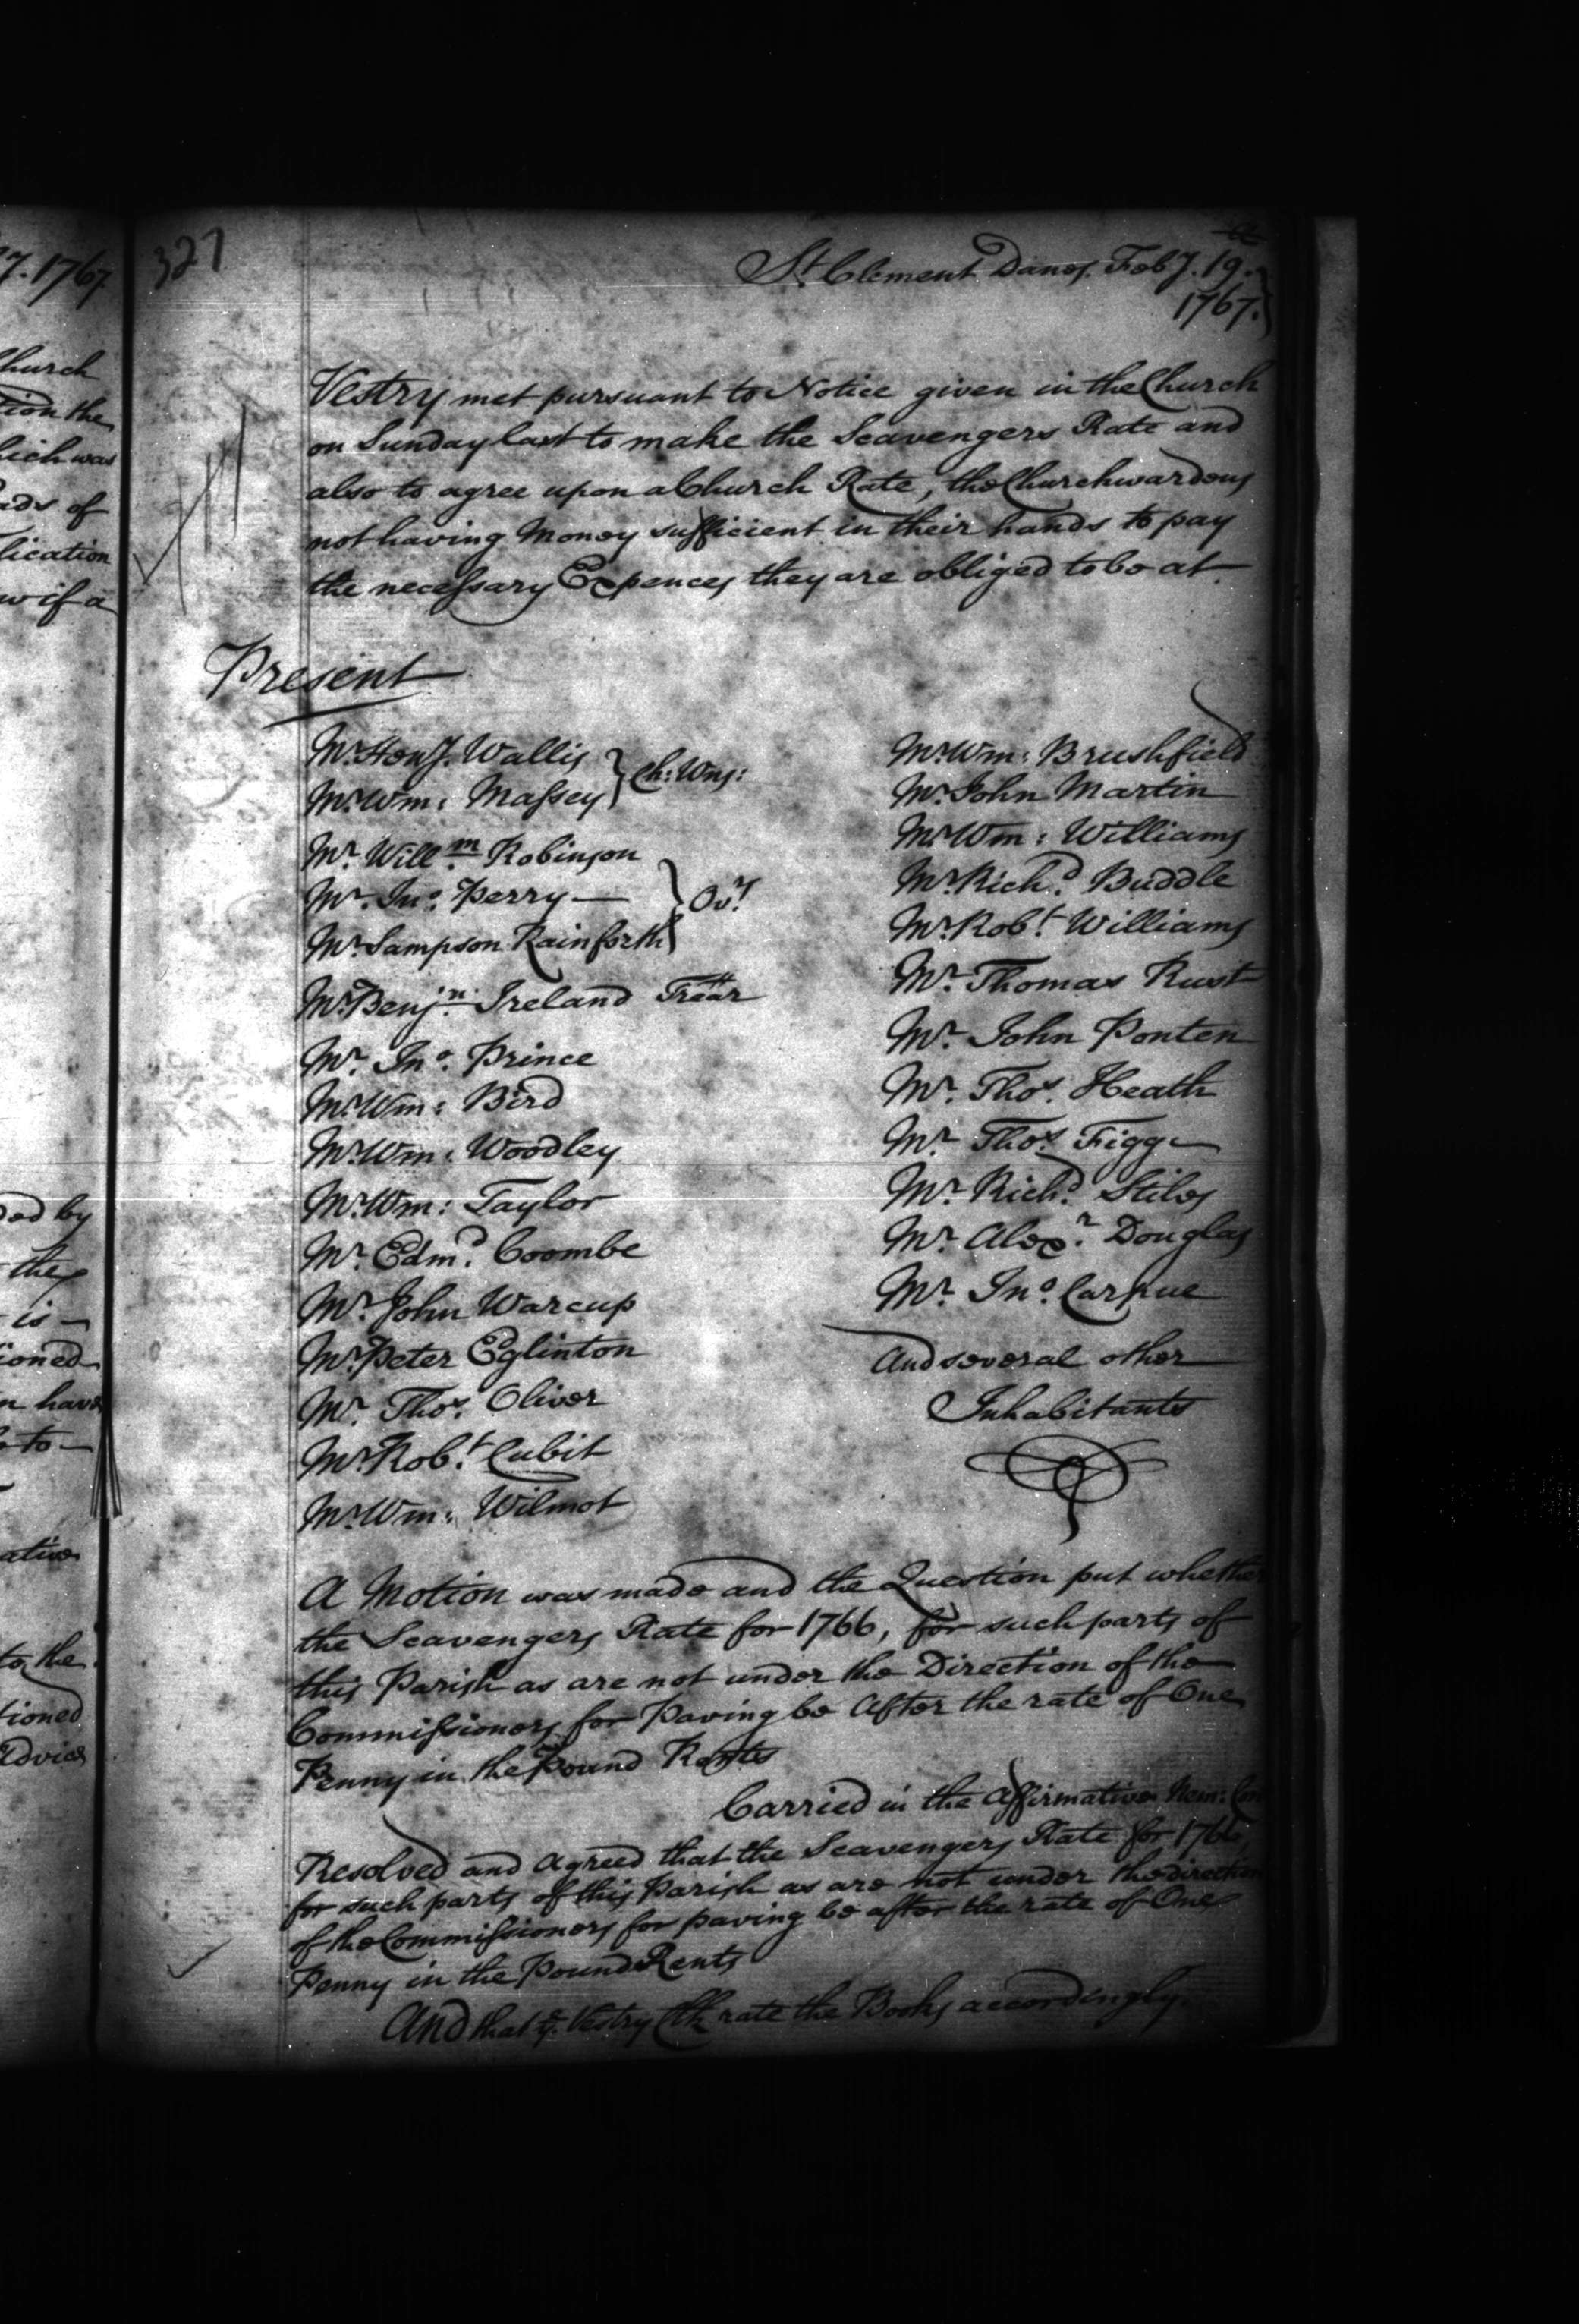 7. 1767
hurch
tion the
hich was
ads of
lication
w if a
ded by
the
is -
ioned
n have
to -
ative
to the
tioned
Advice
327
St. Clement Danes. Feb.y 19.
1767.
Vestry met pursuant to Notice given in the Church
on Sunday last to make the Scavengers Rate and
also to agree upon a Church Rate, the Churchwardens
not having Money sufficient in their hands to pay
the necessary Expences they are obliged to be at.
Present
Mr. Heny. Wallis
Mr. Wm: Massey } Ch: Wns:
Mr. Willm. Robinson
Mr. Jno. Perry —
Mr. Sampson Rainforth } Ovr.
Mr. Benjn. Ireland Trear
Mr. Jno. Prince
Mr. Wm: Bird
Mr. Wm: Woodley
Mr. Wm: Taylor
Mr. Edmd. Coombe
Mr. John Warcup
Mr. Peter Eglinton
Mr. Thos. Oliver
Mr. Robt. Cubit
Mr. Wm: Wilmot
Mr. Wm: Brushfield
Mr. John Martin
Mr. Wm: Williams
Mr. Richd. Buddle
Mr. Robt. Williams
Mr. Thomas Rust
Mr. John Ponten
Mr. Thos. Heath
Mr. Thos. Figge
Mr. Richd. Stiles
Mr. Alexr. Douglas
Mr. Jno. Carpue
And several other
Inhabitants
A Motion was made and the Question put whether
the Scavengers Rate for 1766, for such parts of
this Parish as are not under the Direction of the
Commissioners for Paving be After the rate of One
Penny in the Pound Rents
Carried in the Affirmative Nem: Con
Resolved and Agreed that the Scavengers Rate for 1766,
for such parts of this Parish as are not under the direction
of the Commissioners for paving be after the rate of One
Penny in the Pound Rents
And that ye. Vestry Clk rate the Books accordingly.